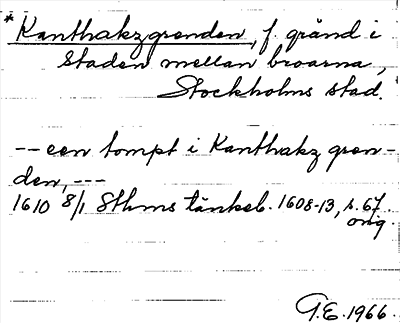 * Kanthakzgrenden, f. gränd i
staden mellan broarna,
Stockholms stad.
-- een tompt i Kanthakz gren-
den, ---
1610 8/1 Sthms tänkeb. 1608-13, s. 67
orig.
G.E. 1966.